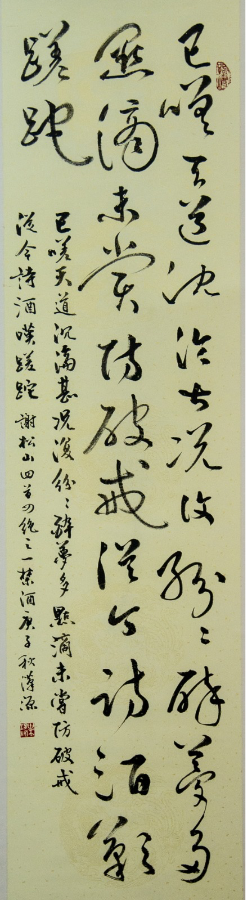 已嗟天道沈淪甚况復紛〻醉夢多
點滴未嘗防破戒從今詩酒嘆
蹉跎
已嗟天道沉淪甚况復紛〻醉夢多點滴未嘗防破戒
從今詩酒嘆蹉跎 謝松山四首之一禁酒庚子秋源